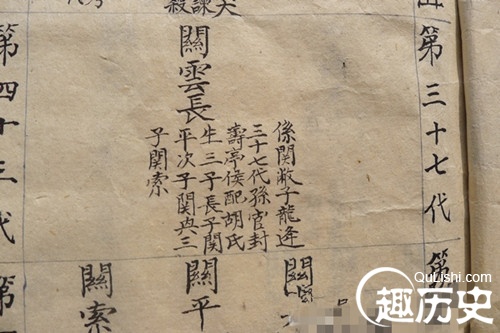 第三十七代
第
關雲長
係関敝子龍逄
三十七代孫官封
壽亭侯配胡氏
生三子長子関
平次子関與三
子関索
關
關平
關索
第四十三代
第
QuLishi.com
趣历史